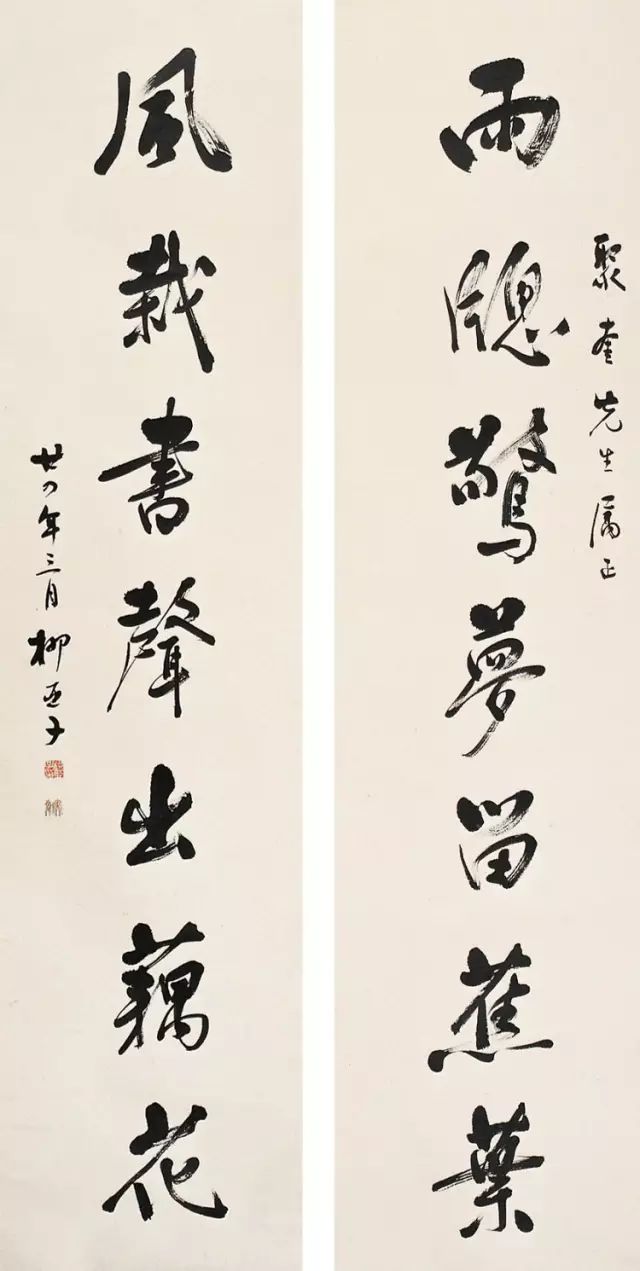 聚奎先生属正
雨牕驚夢留蕉葉
風栽書聲出藕花
廿四年三月柳亞子